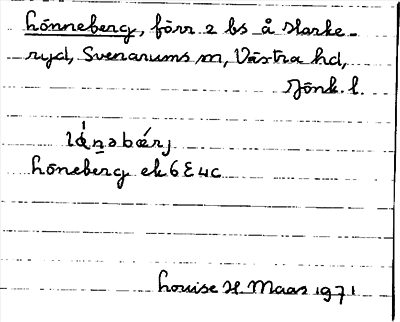 Lönneberg, förr 2 bs å Harke-
ryd, Svenarums sn, Västra hd,
Jönk. l.
lǿn̲əbærj
Löneberg ek 6 E 4c
Louise H. Maas 1971